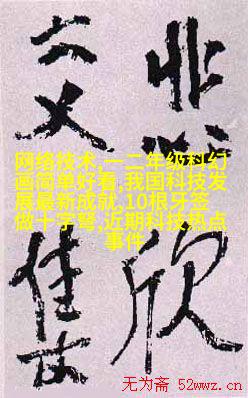 悲欣
交集
网络技术,一二年级科幻
画简单好看,我国科技发
展最新成就,10根牙签
做十字弩,近期科技热点
事件
无为斋 52wwz.cn